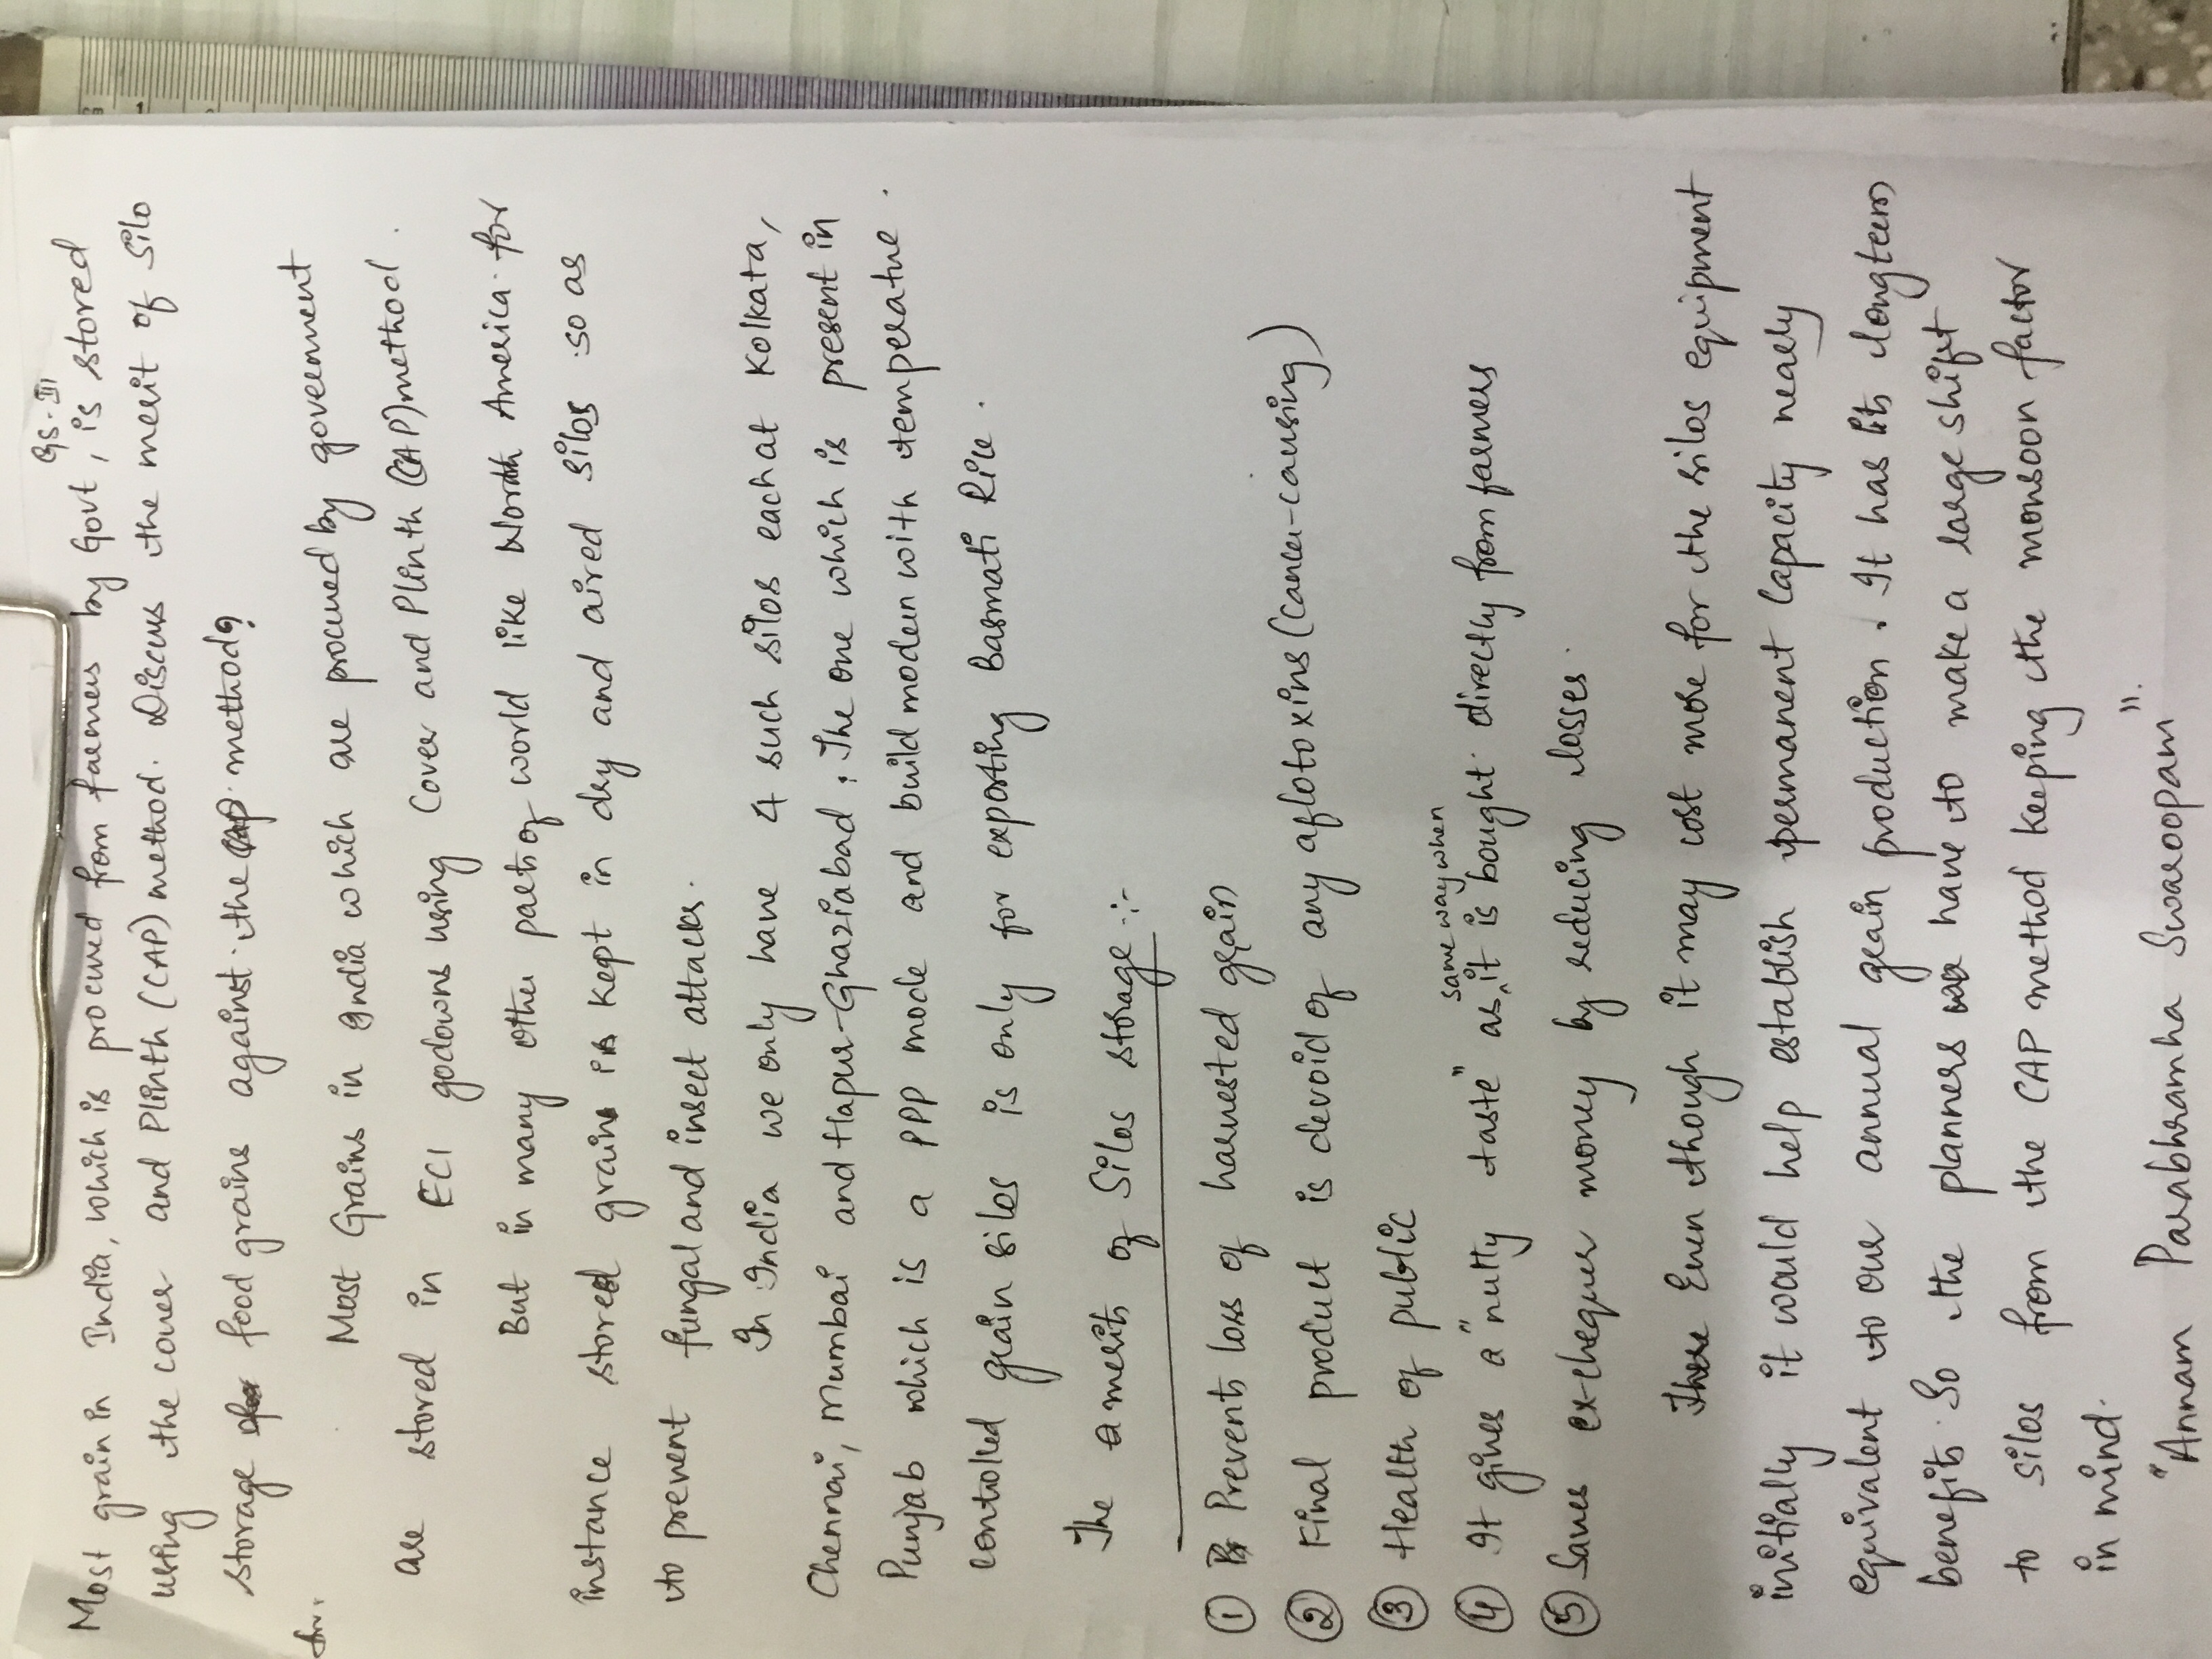 GS-III
Most grain in India, which is procured from farmers by Govt, is stored
using the cover and Plinth (CAP) method. Discuss the merit of Silo
storage of food grains against the CAP method?
Ans:
Most Grains in India which are procured by government
are stored in FCI godowns using Cover and Plinth (CAP) method.
But in many other parts of world like North America for
instance stored grain is kept in dry and aired silos so as
to prevent fungal and insect attacks.
In India we only have 4 such silos each at Kolkata,
Chennai, Mumbai and Hapur-Ghaziabad. The one which is present in
Punjab which is a PPP mode and build modern with temperature
controlled grain silos is only for exporting Basmati Rice.
The merits of Silos storage :-
① Prevents loss of harvested grain
② Final product is devoid of any aflotoxins (Cancer-causing)
③ Health of public
same way when
④ It gives a "nutty taste" as it is bought directly from farmers
⑤ Saves exchequer money by reducing losses.
Even though it may cost more for the silos equipment
initially it would help establish permanent capacity nearly
equivalent to our annual grain production. It has its longterm
benefits. So the planners have to make a large shift
to silos from the CAP method keeping the monsoon factor
in mind.
"Annam Parabhramha Swaroopam".
cm
1